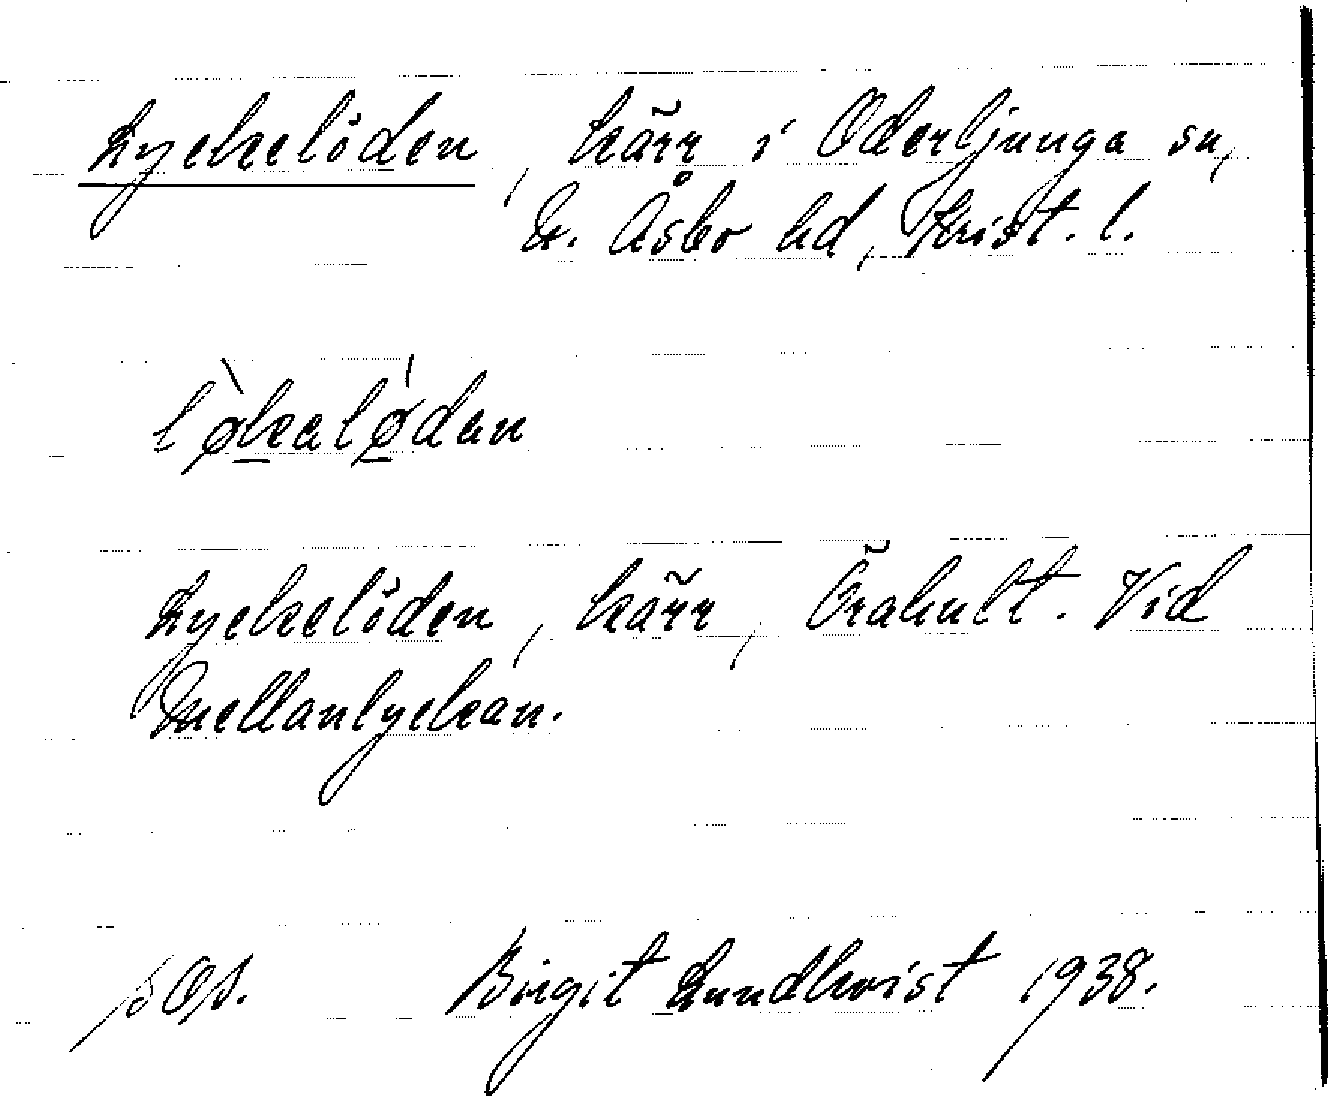 Lyckelöden, kärr i Oderljunga sn,
N. Åsbo hd, Krist. l.
løkaløden
Lyckelöden, kärr, Örahult. Vid
Mellanlyckan.
Birgit Lundkvist 1938.